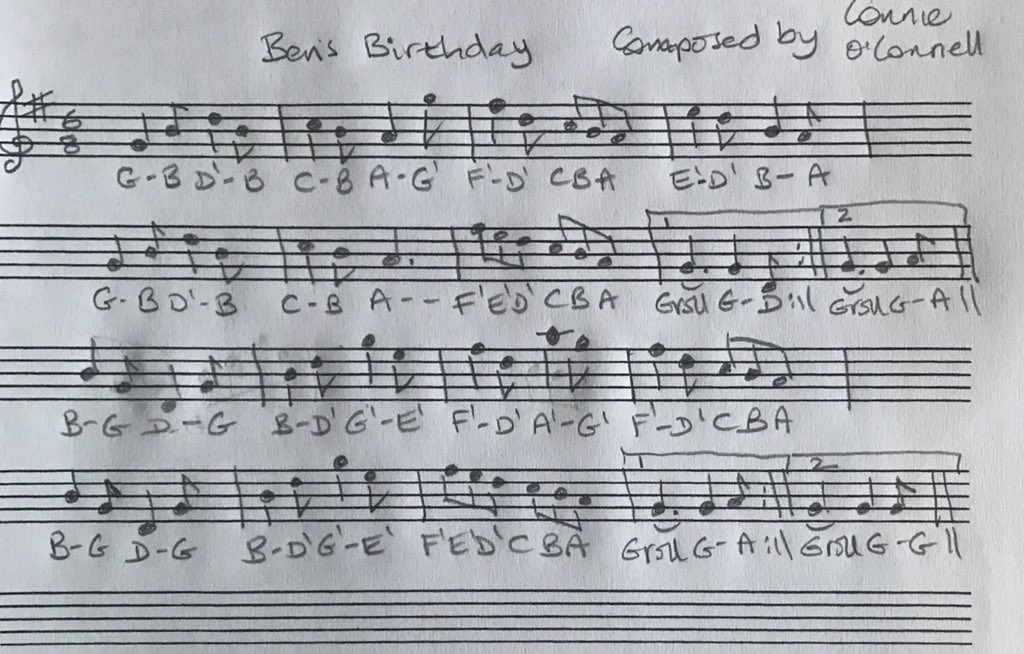 Ben's Birthday Composed by Connie O'Connell
6
8
G-B D'-B C-B A-G' F'-D' CBA E'-D' B-A
1 2
G-B D'-B C-B A-- F'E'D' CBA Groll G-D :|| Groll G-A ||
B-G D-G B-D' G'-E' F'-D' A'-G' F'-D' CBA
1 2
B-G D-G B-D' G'-E' F'E'D' C BA Groll G-A :|| Groll G-G ||